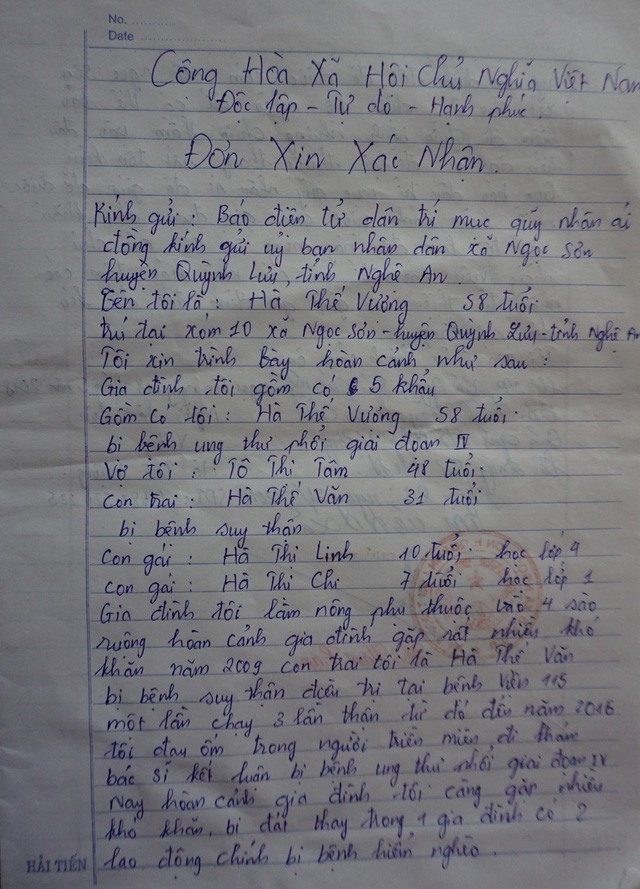 No. ............
Date ........................
Công Hòa Xã Hội Chủ Nghĩa Việt Nam
Độc lập - Tự do - Hạnh phúc.
Đơn Xin Xác Nhận.
Kính gửi : Báo điện tử dân trí mục quỹ nhân ái
đồng kính gửi uỷ bạn nhân dân xã Ngọc Sơn
huyện Quỳnh Lưu, tỉnh Nghệ An.
Tên tôi là : Hà Thế Vương 58 tuổi
trú tại xóm 10 xã Ngọc Sơn - huyện Quỳnh Lưu - tỉnh Nghệ An
Tôi xin trình bày hoàn cảnh như sau :
Gia đình tôi gồm có 5 khẩu
Gồm có tôi : Hà Thế Vương 58 tuổi.
bị bệnh ung thư phổi giai đoạn IV
Vợ tôi : Tô Thị Tâm 48 tuổi.
con trai : Hà Thế Văn 31 tuổi
bị bệnh suy thận
Con gái : Hà Thị Linh 10 tuổi. học lớp 4
con gái : Hà Thị Chi 7 tuổi học lớp 1
Gia đình tôi làm nông phụ thuộc vào 4 sào
ruộng hoàn cảnh gia đình gặp rất nhiều khó
khăn năm 2009 con trai tôi là Hà Thế Văn
bị bệnh suy thận điều trị tại bệnh viện 115
một lần chạy 3 lần thận từ đó đến năm 2016
tôi đau ốm trong người triền miên đi thăm
bác sĩ kết luận bị bệnh ung thư phổi giai đoạn IV
Nay hoàn cảnh gia đình tôi càng gặp nhiều
khó khăn. bi đát thay trong 1 gia đình có 2
lao động chính bị bệnh hiểm nghèo.
HẢI TIẾN